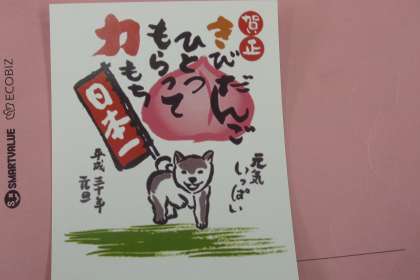 賀正
きびだんご
ひとつ
もらって
力もち
日本一
元気
いっぱい
平成三十年
元旦
SMARTVALUE
ECOBIZ